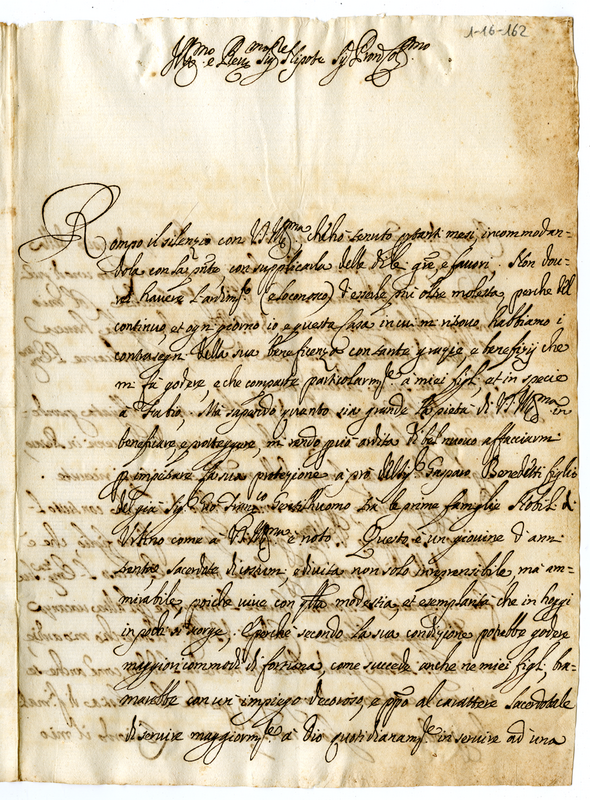 1-16-162
Ill.mo e Rev. Sig. Nipote Sig.
Rompo il silenzio con V.S. Ill.ma ch'hò tenuto mesi, incommodan=
dola con la pnte con supplicarla delle di lei grẽ e favori. Non dou=
rei havere l'ardim.to (e lo conosco) d'esserle più oltre molesta, perche del
continuo, et ogni giorno io e questa Casa in cui mi ritrovo, habbiamo i
contrasegni della sua beneficenza con tante grazie, e benefizij che
mi fà godere, e che comparte particolarm.te a miei figli, et in specie
a Fabio. Mà sapendo quanto sia grande la pietà di V.S. Ill.ma in
beneficare, e proteggere, mi rendo più ardita di bel nuovo affacciarmi
p impetrare la sua protezione à prò del Sig.r Gaspare Benedetti figlio
del già Sig.r Gentilhuomo trà le prime famiglie Nobili di
come a V.S. Ill.ma è noto. Questo è un giovine d'anni
trenta, Sacerdote di costumi, e di vita non solo irreprensibile, mà am=
mirabile, poiche vive con modestia, et esemplarità che in hoggi
in pochi si scorge. E perche secondo la sua condizione potrebbe godere
maggiori commodi di fortuna, come succede anche ne miei figli, bra=
marebbe con un impiego decoroso, e ppõ al carattere Sacerdotale
di servire maggiorm.te a Dio quotidianam.te in servire ad una